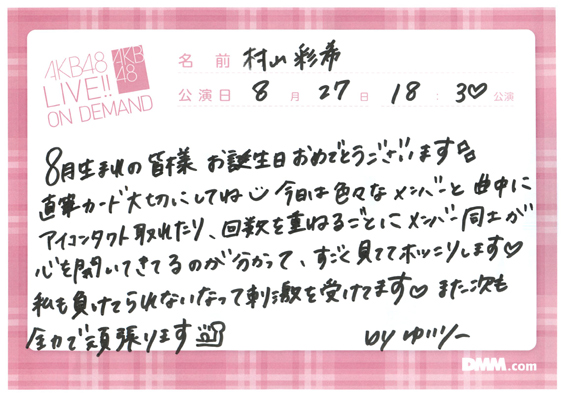 AKB48
LIVE!!
ON DEMAND
AKB
48
名前 村山彩希
公演日 8月27日 18:30公演
8月生まれの皆様 お誕生日おめでとうございます
直筆カード大切にしてね 今日は色々なメンバーと曲中に
アイコンタクト取れたり、回数を重ねるごとにメンバー同士が
心を開いてきてるのが分かって、すごく見ててホッコリします♡
私も負けてられないなって刺激を受けてます♡ また次も
全力で頑張ります
by ゆいりー
DMM.com